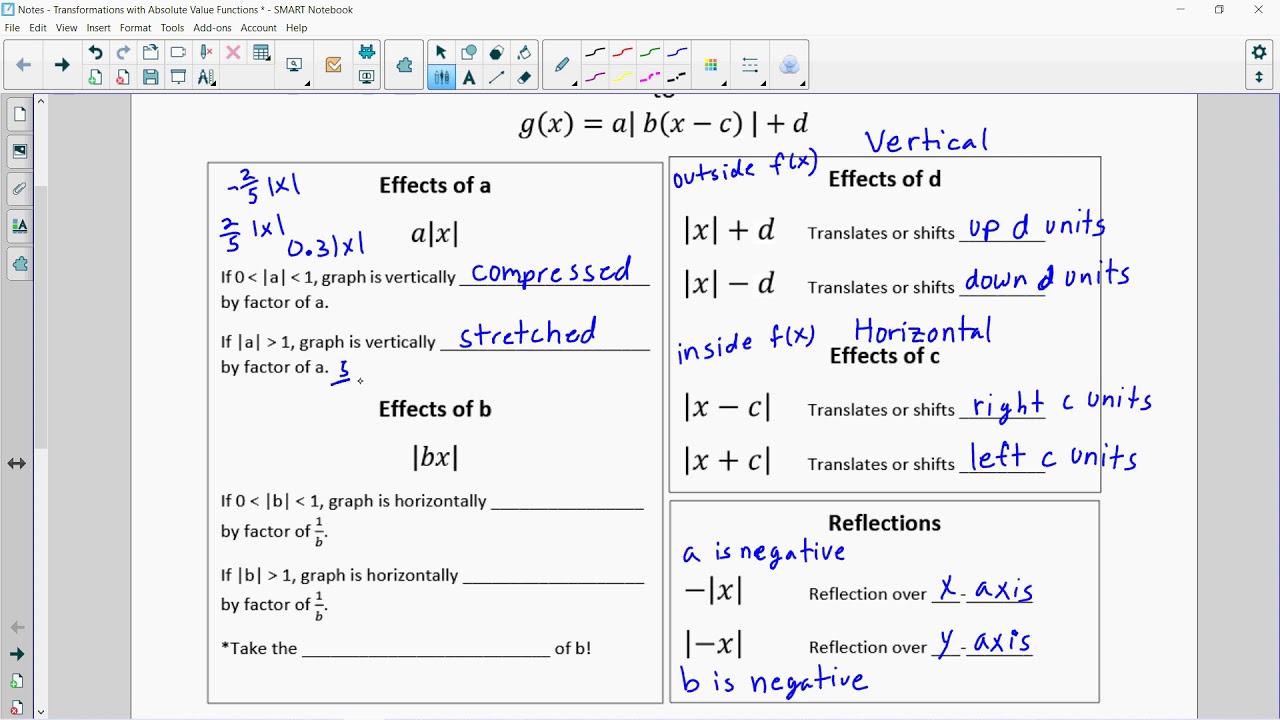 Notes - Transformations with Absolute Value Functions * - SMART Notebook
File Edit View Insert Format Tools Add-ons Account Help
g(x) = a| b(x − c) | + d
Vertical
-2/5 |x|
Effects of a
2/5 |x|
0.3|x|
a|x|
If 0 < |a| < 1, graph is vertically compressed
by factor of a.
If |a| > 1, graph is vertically stretched
by factor of a. 5
Effects of b
|bx|
If 0 < |b| < 1, graph is horizontally ________________
by factor of 1/b.
If |b| > 1, graph is horizontally ___________________
by factor of 1/b.
*Take the __________________________ of b!
outside f(x)
Effects of d
|x| + d Translates or shifts up d units
|x| − d Translates or shifts down d units
inside f(x) Horizontal
Effects of c
|x − c| Translates or shifts right c units
|x + c| Translates or shifts left c units
Reflections
a is negative
−|x| Reflection over x - axis
|−x| Reflection over y - axis
b is negative